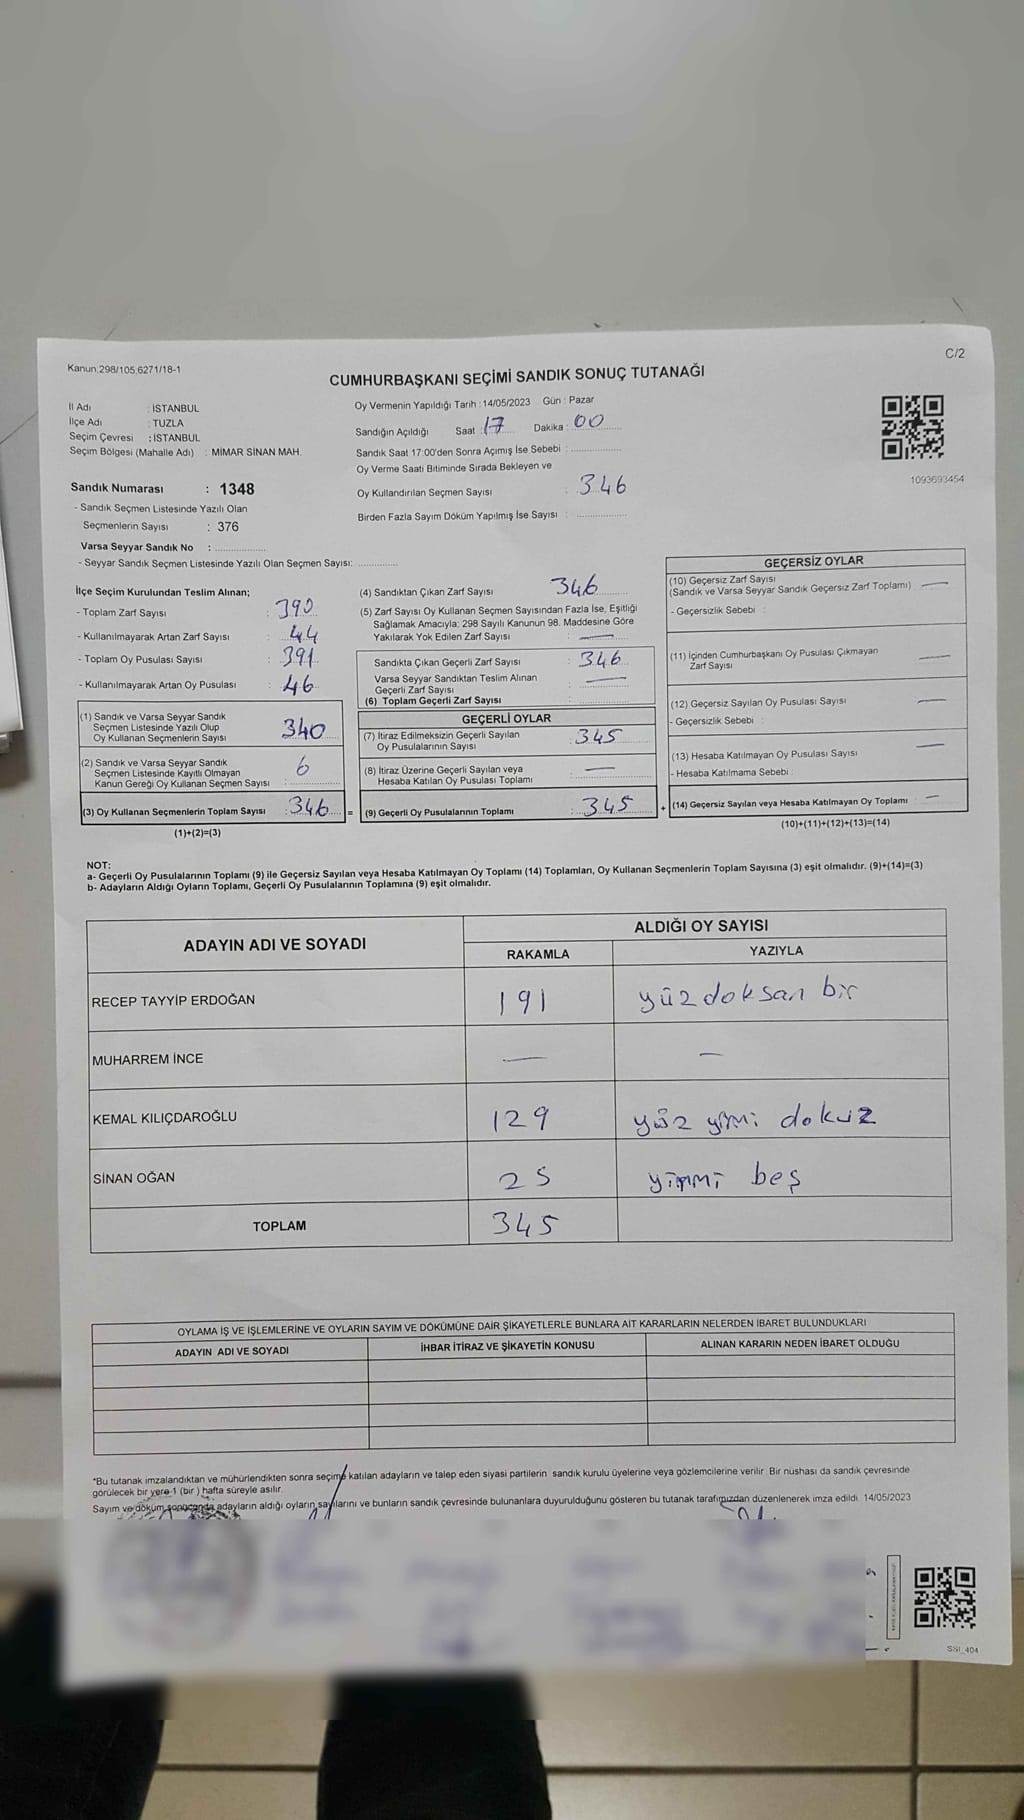 Kanun.298/105,6271/18-1
C/2
CUMHURBAŞKANI SEÇİMİ SANDIK SONUÇ TUTANAĞI
İl Adı : İSTANBUL
İlçe Adı : TUZLA
Seçim Çevresi : İSTANBUL
Seçim Bölgesi (Mahalle Adı) : MİMAR SİNAN MAH.
Sandık Numarası : 1348
- Sandık Seçmen Listesinde Yazılı Olan
Seçmenlerin Sayısı : 376
Varsa Seyyar Sandık No :
- Seyyar Sandık Seçmen Listesinde Yazılı Olan Seçmen Sayısı:
Oy Vermenin Yapıldığı Tarih : 14/05/2023 Gün : Pazar
Sandığın Açıldığı Saat : 17 Dakika : 00
Sandık Saat 17:00'den Sonra Açımış İse Sebebi :
Oy Verme Saati Bitiminde Sırada Bekleyen ve
Oy Kullandırılan Seçmen Sayısı : 346
Birden Fazla Sayım Döküm Yapılmış İse Sayısı :
1093693454
İlçe Seçim Kurulundan Teslim Alınan;
- Toplam Zarf Sayısı : 390
- Kullanılmayarak Artan Zarf Sayısı : 44
- Toplam Oy Pusulası Sayısı : 391
- Kullanılmayarak Artan Oy Pusulası : 46
(1) Sandık ve Varsa Seyyar Sandık
Seçmen Listesinde Yazılı Olup
Oy Kullanan Seçmenlerin Sayısı 340
(2) Sandık ve Varsa Seyyar Sandık
Seçmen Listesinde Kayıtlı Olmayan
Kanun Gereği Oy Kullanan Seçmen Sayısı : 6
(3) Oy Kullanan Seçmenlerin Toplam Sayısı : 346 =
(1)+(2)=(3)
(4) Sandıktan Çıkan Zarf Sayısı : 346
(5) Zarf Sayısı Oy Kullanan Seçmen Sayısından Fazla İse, Eşitliği
Sağlamak Amacıyla; 298 Sayılı Kanunun 98. Maddesine Göre
Yakılarak Yok Edilen Zarf Sayısı : —
Sandıkta Çıkan Geçerli Zarf Sayısı : 346
Varsa Seyyar Sandıktan Teslim Alınan : —
Geçerli Zarf Sayısı
(6) Toplam Geçerli Zarf Sayısı :
GEÇERLİ OYLAR
(7) İtiraz Edilmeksizin Geçerli Sayılan
Oy Pusulalarının Sayısı : 345
(8) İtiraz Üzerine Geçerli Sayılan veya
Hesaba Katılan Oy Pusulası Toplamı : —
(9) Geçerli Oy Pusulalarının Toplamı : 345 +
GEÇERSİZ OYLAR
(10) Geçersiz Zarf Sayısı
(Sandık ve Varsa Seyyar Sandık Geçersiz Zarf Toplamı) —
- Geçersizlik Sebebi :
(11) İçinden Cumhurbaşkanı Oy Pusulası Çıkmayan
Zarf Sayısı —
(12) Geçersiz Sayılan Oy Pusulası Sayısı —
- Geçersizlik Sebebi :
(13) Hesaba Katılmayan Oy Pusulası Sayısı —
- Hesaba Katılmama Sebebi :
(14) Geçersiz Sayılan veya Hesaba Katılmayan Oy Toplamı : —
(10)+(11)+(12)+(13)=(14)
NOT:
a- Geçerli Oy Pusulalarının Toplamı (9) ile Geçersiz Sayılan veya Hesaba Katılmayan Oy Toplamı (14) Toplamları, Oy Kullanan Seçmenlerin Toplam Sayısına (3) eşit olmalıdır. (9)+(14)=(3)
b- Adayların Aldığı Oyların Toplamı, Geçerli Oy Pusulalarının Toplamına (9) eşit olmalıdır.
ADAYIN ADI VE SOYADI
ALDIĞI OY SAYISI
RAKAMLA YAZIYLA
RECEP TAYYİP ERDOĞAN 191 yüzdoksan bir
MUHARREM İNCE — —
KEMAL KILIÇDAROĞLU 129 yüz yirmi dokuz
SİNAN OĞAN 25 yirmi beş
TOPLAM 345
OYLAMA İŞ VE İŞLEMLERİNE VE OYLARIN SAYIM VE DÖKÜMÜNE DAİR ŞİKAYETLERLE BUNLARA AİT KARARLARIN NELERDEN İBARET BULUNDUKLARI
ADAYIN ADI VE SOYADI İHBAR İTİRAZ VE ŞİKAYETİN KONUSU ALINAN KARARIN NEDEN İBARET OLDUĞU
*Bu tutanak imzalandıktan ve mühürlendikten sonra seçime katılan adayların ve talep eden siyasi partilerin sandık kurulu üyelerine veya gözlemcilerine verilir. Bir nüshası da sandık çevresinde
görülecek bir yere 1 (bir ) hafta süreyle asılır.
Sayım ve döküm sonucunda adayların aldığı oyların sayılarını ve bunların sandık çevresinde bulunanlara duyurulduğunu gösteren bu tutanak tarafımızdan düzenlenerek imza edildi. 14/05/2023
SSI_404